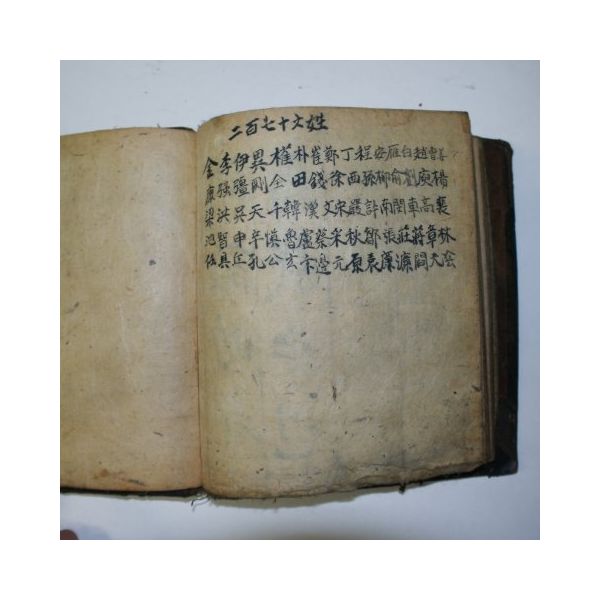 二百七十文姓
金李伊異權朴崔鄭丁程安雁白趙曹
康强彊剛全田錢徐西孫柳俞劉庾楊
梁洪吳天千韓漢文宋嚴許南閔車高裵
池智申辛愼魯盧蔡采秋鄒張莊蔣章林
任具丘孔公玄卞邊元原袁廉濂閻天